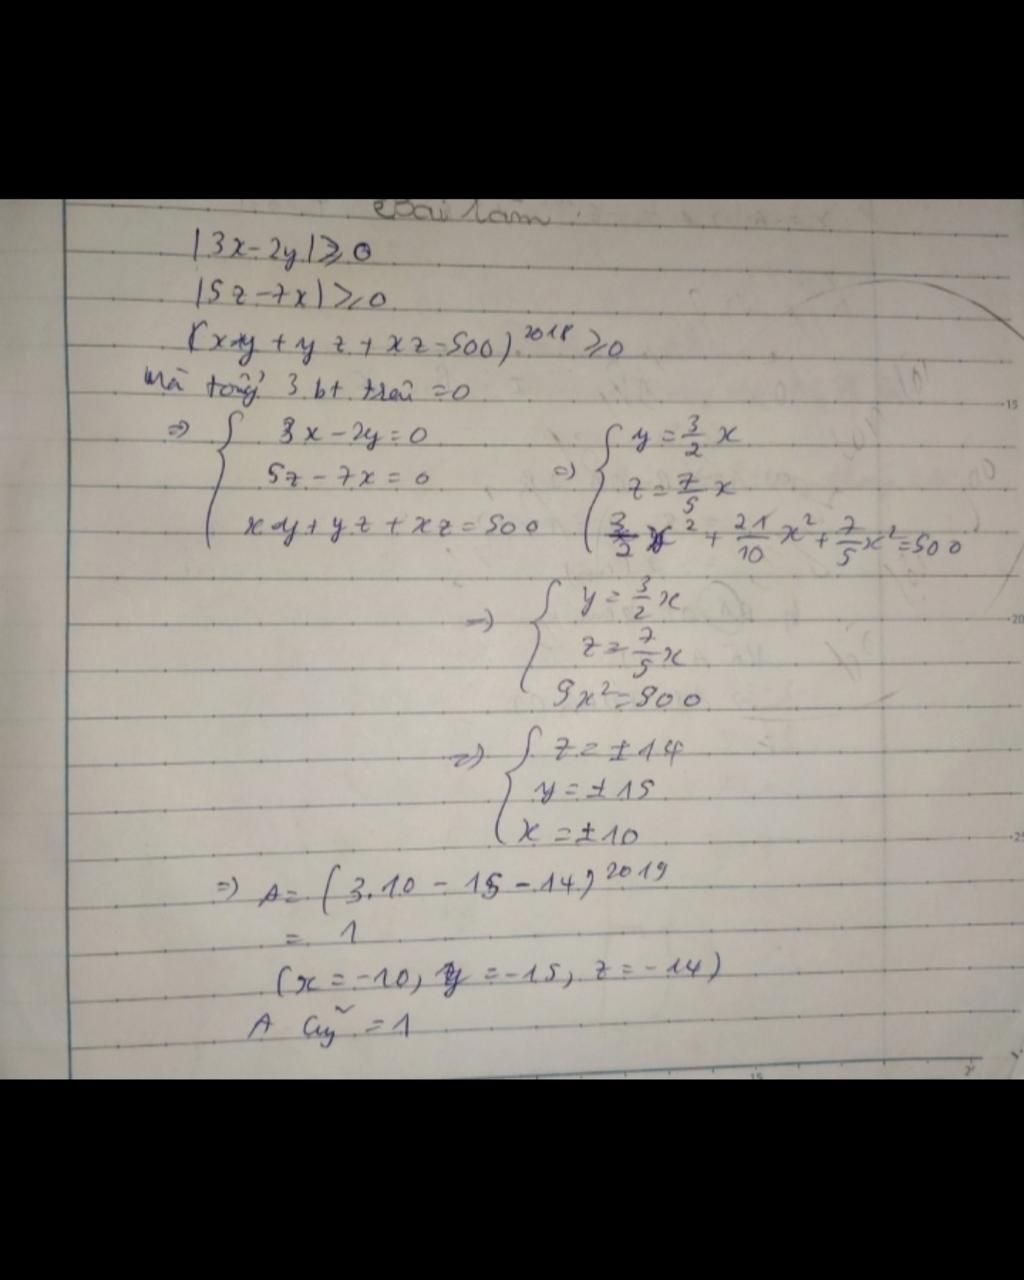 Bài làm
|3x-2y| ⩾ 0
|5z-7x| ⩾ 0
(xy + yz + xz - 500)^2018 ⩾ 0
Mà tổng 3 bt trên = 0
=> { 3x - 2y = 0 => { y = 3/2 x
5z - 7x = 0 z = 7/5 x
xy + yz + xz = 500 3/2 x² + 21/10 x² + 7/5 x² = 500
=> { y = 3/2 x
z = 7/5 x
5x² = 500
=> { z = ±14
y = ±15
x = ±10
=> A = (3.10 - 15 - 14)^2019
= 1
(x = -10, y = -15, z = -14)
A cũg = 1
15
20
25
15